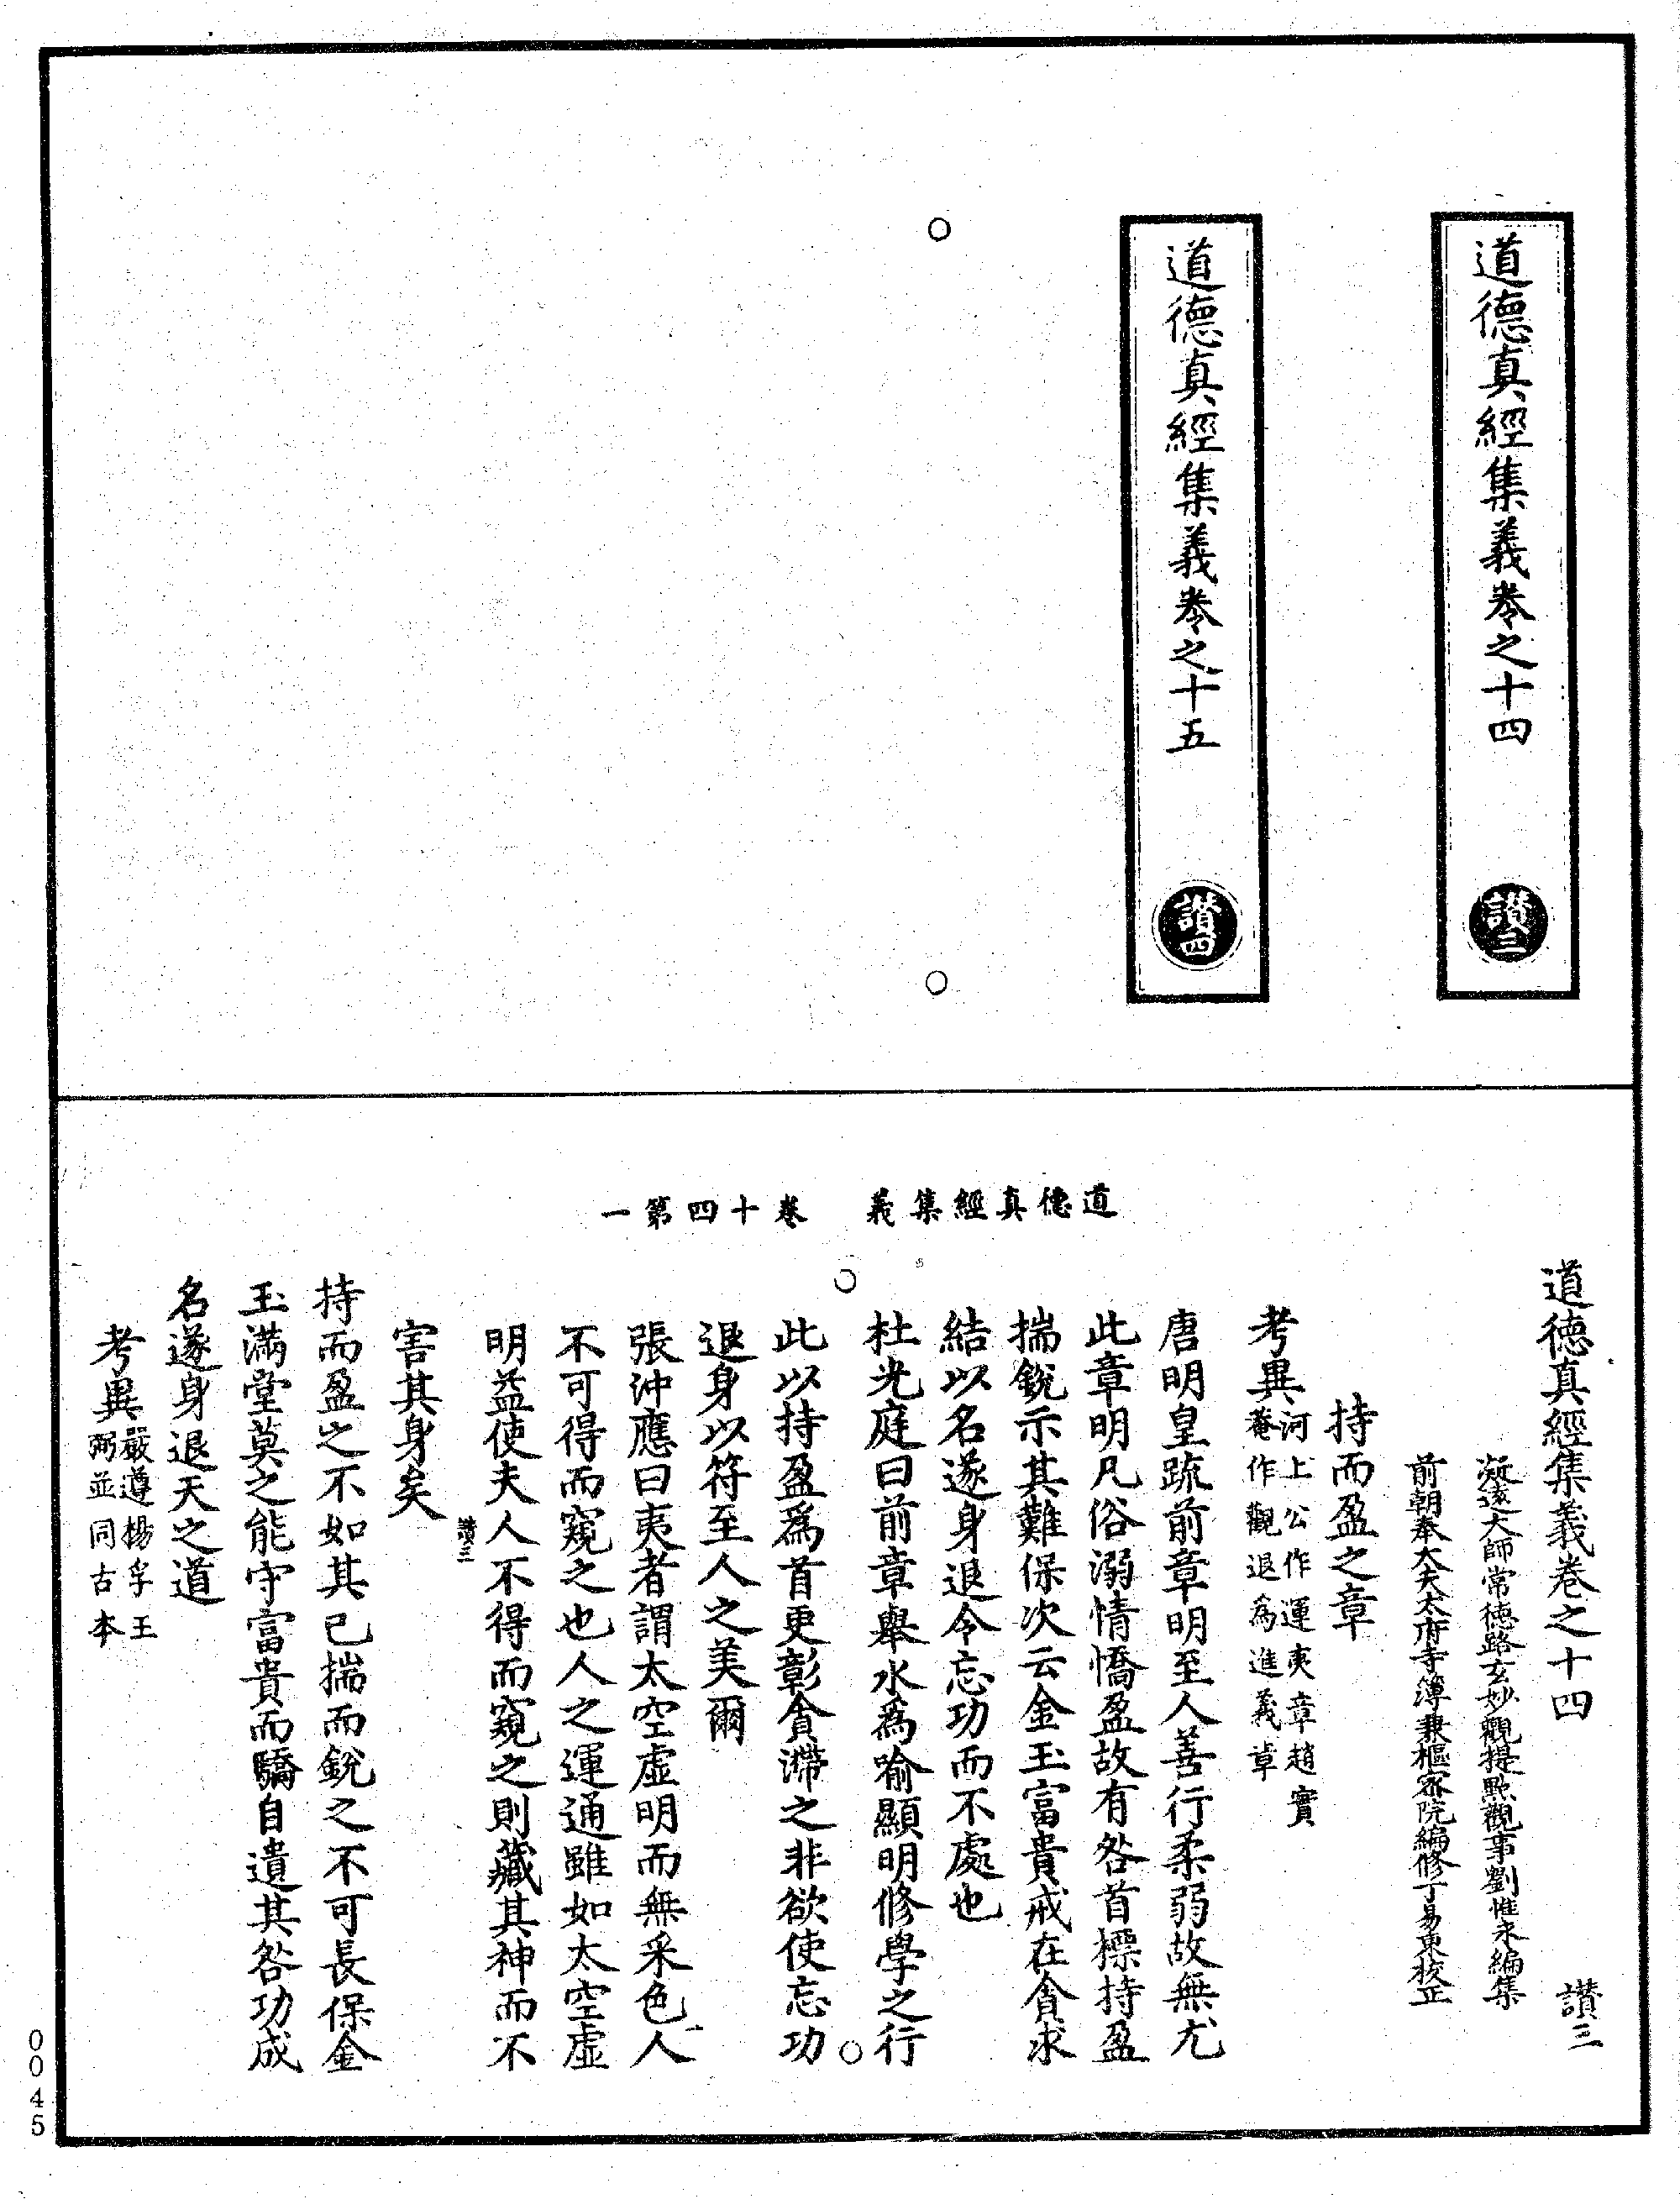 道德真經集義卷之十四
讚三
道德真經集義卷之十五
讚四
道德真經集義　卷十四第一
道德真經集義卷之十四　讚三
凝遠大師常德路玄妙觀提點觀事劉惟永編集
前朝奉大夫太府寺簿兼樞密院編修丁易東校正
持而盈之章
考異河上公作運夷章趙實
菴作觀退為進義章
唐明皇疏前章明至人善行柔弱故無尤
此章明凡俗溺情憍盈故有咎首標持盈
揣銳示其難保次云金玉富貴戒在貪求
結以名遂身退令忘功而不處也
杜光庭曰前章舉水為喻顯明修學之行
此以持盈為首更彰貪滯之非欲使忘功
退身以符至人之美爾
張沖應曰夷者謂太空虛明而無采色人
不可得而窺之也人之運通雖如太空虛
明益使夫人不得而窺之則藏其神而不
讚三
害其身矣
持而盈之不如其已揣而銳之不可長保金
玉滿堂莫之能守富貴而驕自遺其咎功成
名遂身退天之道
考異嚴遵楊孚王
弼並同古本
0045